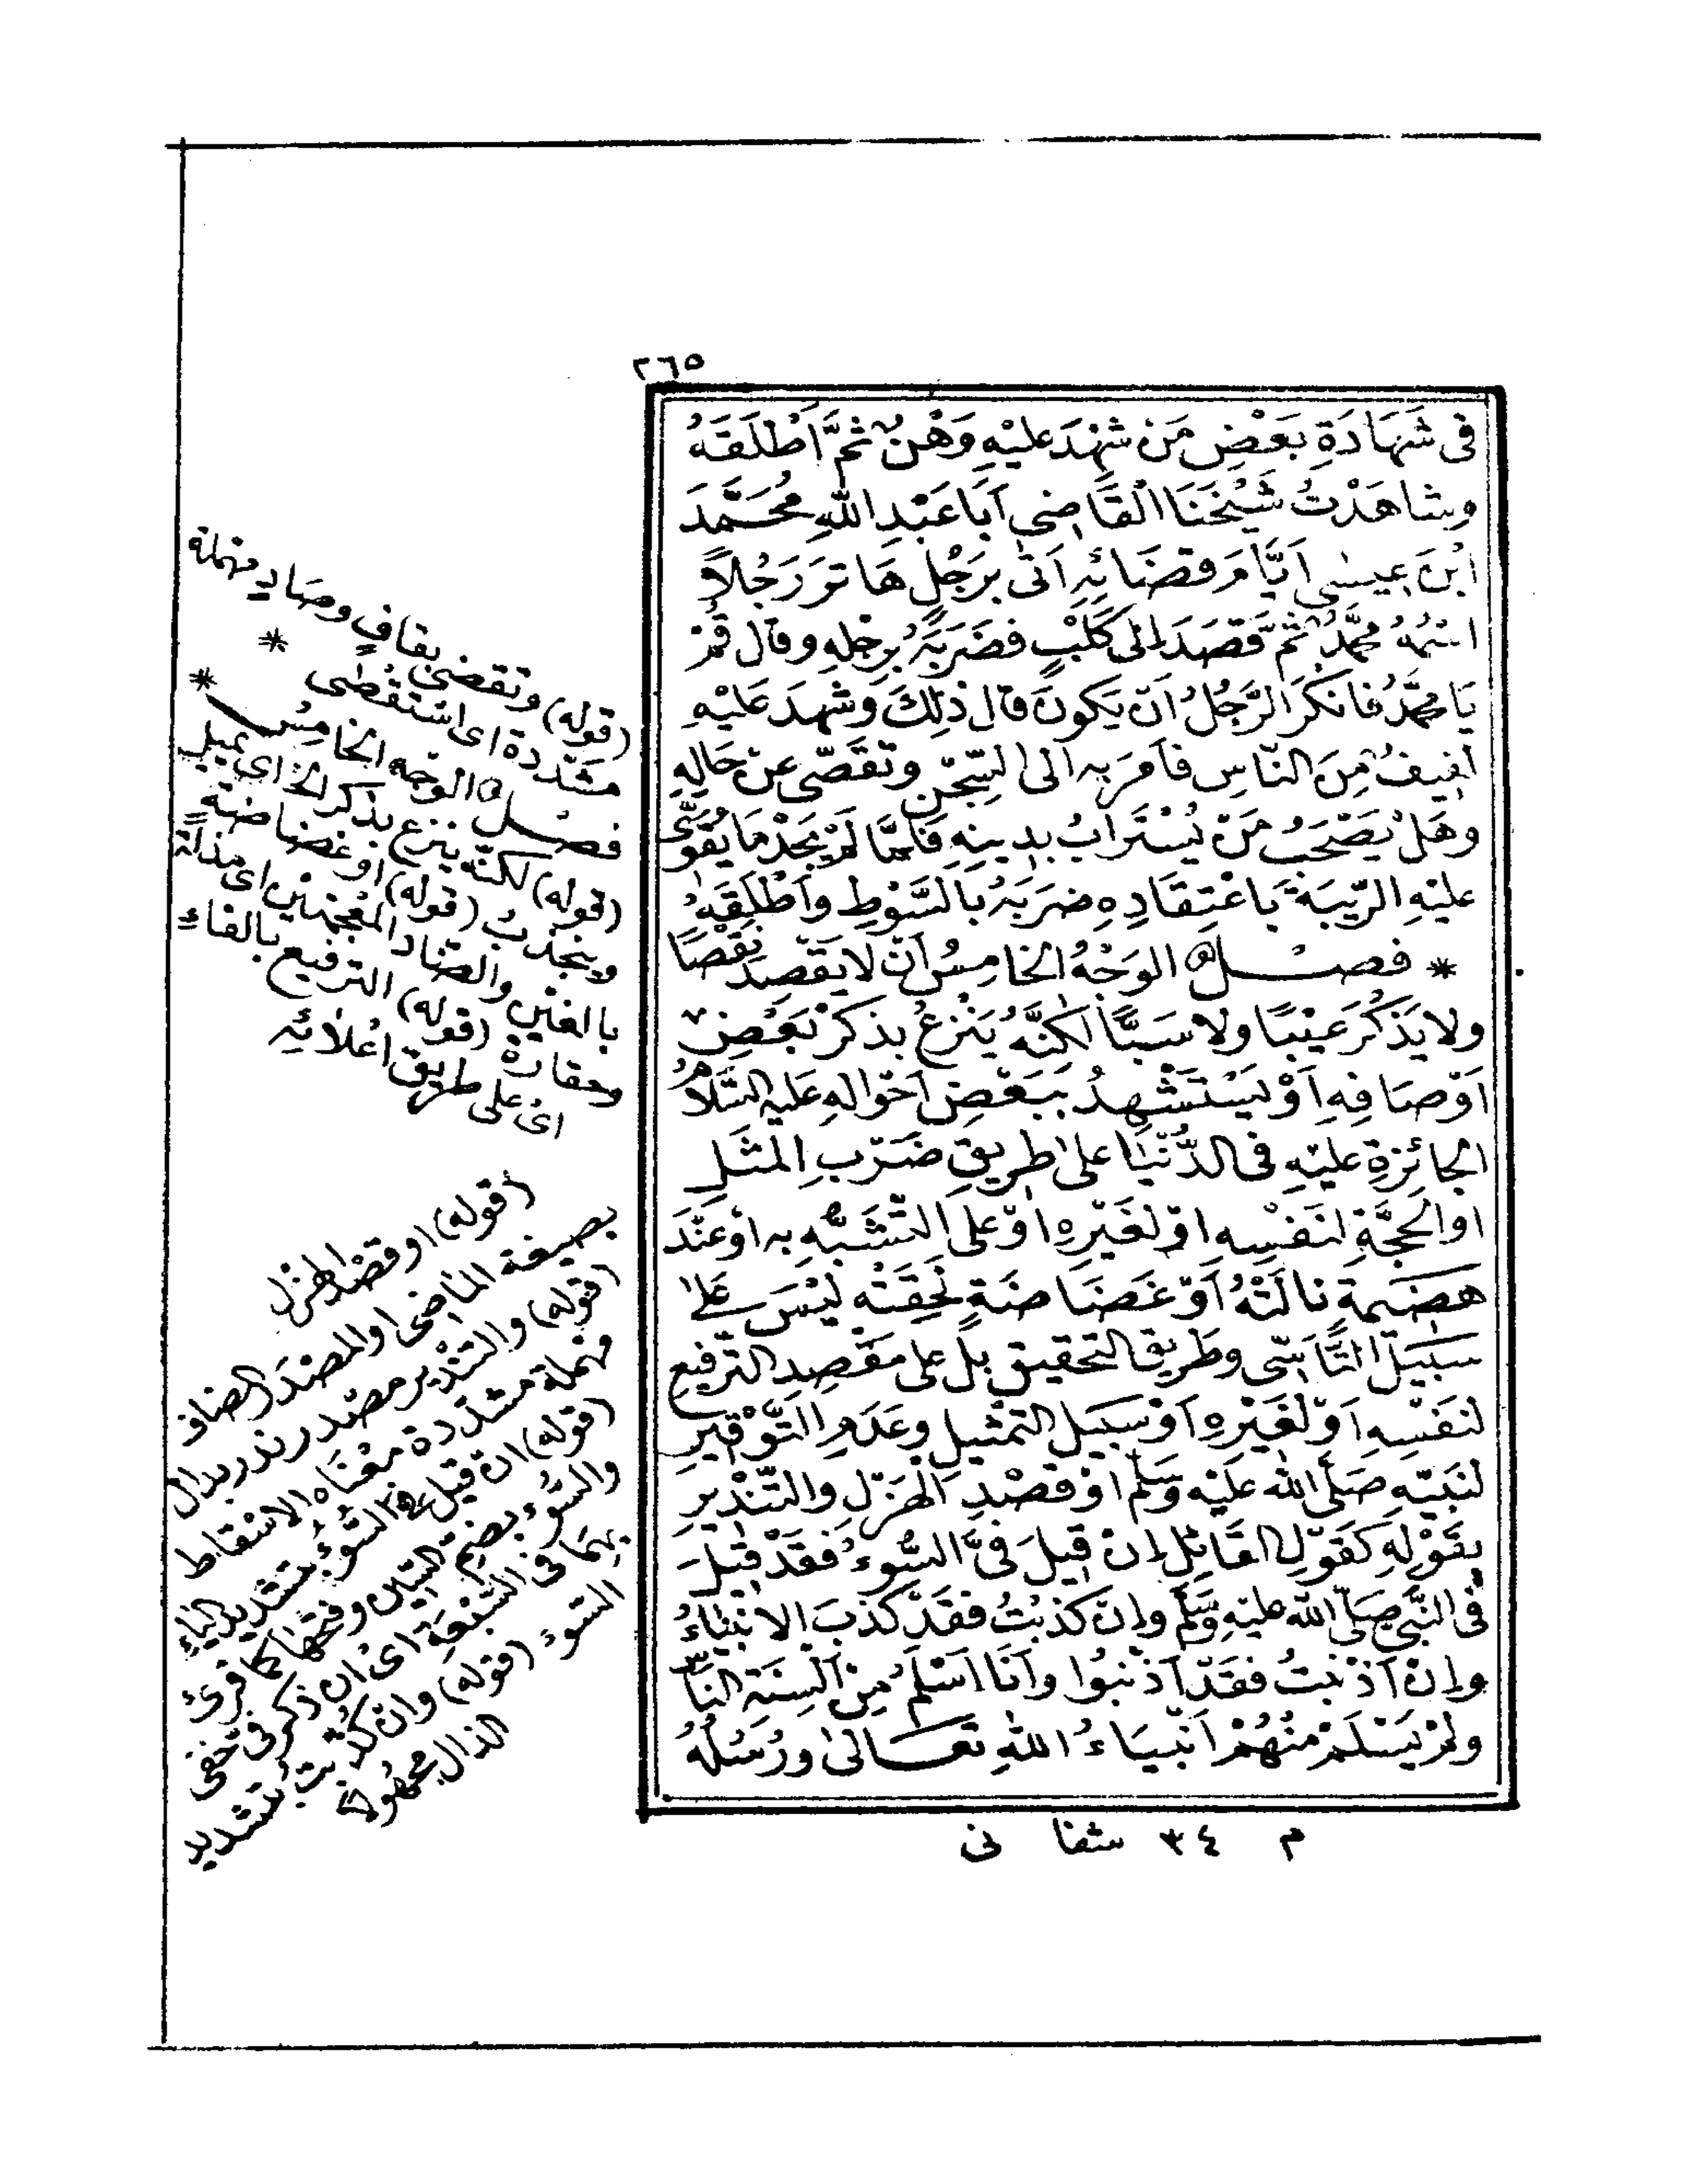 ٢٦٥
فى شَهَادَةِ بَعْضِ مَنْ شَهِدَ عليْهِ وَهْنٌ ثمَّ اَطْلَقَهُ
وشاهَدْتُ شَيْخَنَا القَاضِى اَبَا عَبْدِ اللهِ مُحَمَّدَ
ابْنَ عِيسٰى اَيَّامَ قضَائِهِ اَتٰى بِرَجُلٍ هَاتَرَ رَجُلًا
اسْمُهُ محمَّدٌ ثمَّ قصَدَ اِلى كَلْبٍ فضَرَبَهُ بِرِجْلِهِ وقال قُمْ
يَا محمَّدُ فانكَرَ الرَّجُلُ اَنْ يَكونَ قال ذلِكَ وَشَهِدَ عَلَيْهِ
لفِيفٌ مِنَ النَّاسِ فأَمَرَ بِهِ الى السِّجْنِ وتقَصَّى عنْ حَالِهِ
وهَلْ يَصْحَبُ مَنْ يُسْتَرَابُ بدِينِهِ فَلمَّا لَمْ يَجِدْ مَا يُقَوِّى
عليْهِ الرِّيبَةَ بَاعْتِقَادِهِ ضرَبَهُ بالسَّوْطِ واَطْلَقَهُ
* فصــل الوَجْهُ الخَامِسُ اَنْ لا يَقْصِدَ نَقْصًا
ولا يَذْكُرَ عَيْبًا ولا سَبًّا لكِنَّهُ يَنْزِعُ بِذِكْرِ بَعْضِ
اَوْصَافِهِ اَوْ يَسْتَشْهِدُ بِبَعْضِ اَحْوَالِهِ عَلَيْهِ السَّلَامُ
الجَائِزَةِ عليْهِ فى الدُّنْيَا علىٰ طرِيقِ ضَرْبِ المَثَلِ
او الحُجَّةِ لنَفْسِهِ اوْ لغَيْرِهِ اوْ على التَّشَبُّهِ بِهِ أوْ عِنْدَ
هضِيمَةٍ نَالَتْهُ اَوْ غَضَاضَةٍ لَحِقَتْهُ لَيْسَ عَلىٰ
سَبِيلِ التَّأَسِّى وطَرِيقِ التحقيقِ بلْ على مَقْصِدِ التّرْفِيعِ
لنَفْسِهِ اَوْ لغَيْرِهِ اَوْ سَبِيلِ التمْثِيلِ وعَدَمِ التَّوْقِيرِ
لنَبِيِّهِ صَلَّى اللهُ عليْهِ وَسَلَّمَ اوْ قصْدِ الهَزْلِ والتَّنْذِيرِ
بِقَوْلِهِ كقَوْلِ القَائِلِ اِنْ قِيلَ فِىَّ السُّوءُ فَقَدْ قِيلَ
فى النَّبِىِّ صَلَّى اللهُ عليْهِ وَسَلَّمَ وإِنْ كُذِّبْتُ فَقَدْ كُذِّبَ الانْبِيَاءُ
وإِنْ اَذْنَبْتُ فقَدْ اَذْنَبُوا واَنَا اَسْلَمُ مِنْ اَلْسِنَةِ النَّاسِ
ولَمْ يَسْلَمْ مِنْهُمْ اَنْبِيَاءُ اللهِ تَعَالىٰ ورُسُلُهُ
م ٣٤ شفا نى
(قوله) وتقصى بقافٍ وصَادٍ مهملة
مشددة اى استقصى *
فصــل الوجه الخامس *
(قوله) لكنّه ينزع بذكر الخ اى يميل
وينجذب (قوله) او غضاضة
بالغين والضاد المعجمتين اى مذلة
وحقارة (قوله) الترفيع بالفاء
اى على طريق اعْلَائِهِ
(قوله) او قصد الهزل
بصيغة الماضى او المصدر المضاف
(قوله) والتنذير مصدر نذر بدال
مهملة مشددة معناه الاسقاط
(قوله) ان قيل فىّ السُّوءُ بتشديد الياء
والسُّوء بضم السين وفتحها كما قرئ
بهما فى السبعة اى ان ذكر فى حقى
السوء (قوله) وان كذبت بتشديد
الذال مجهولا